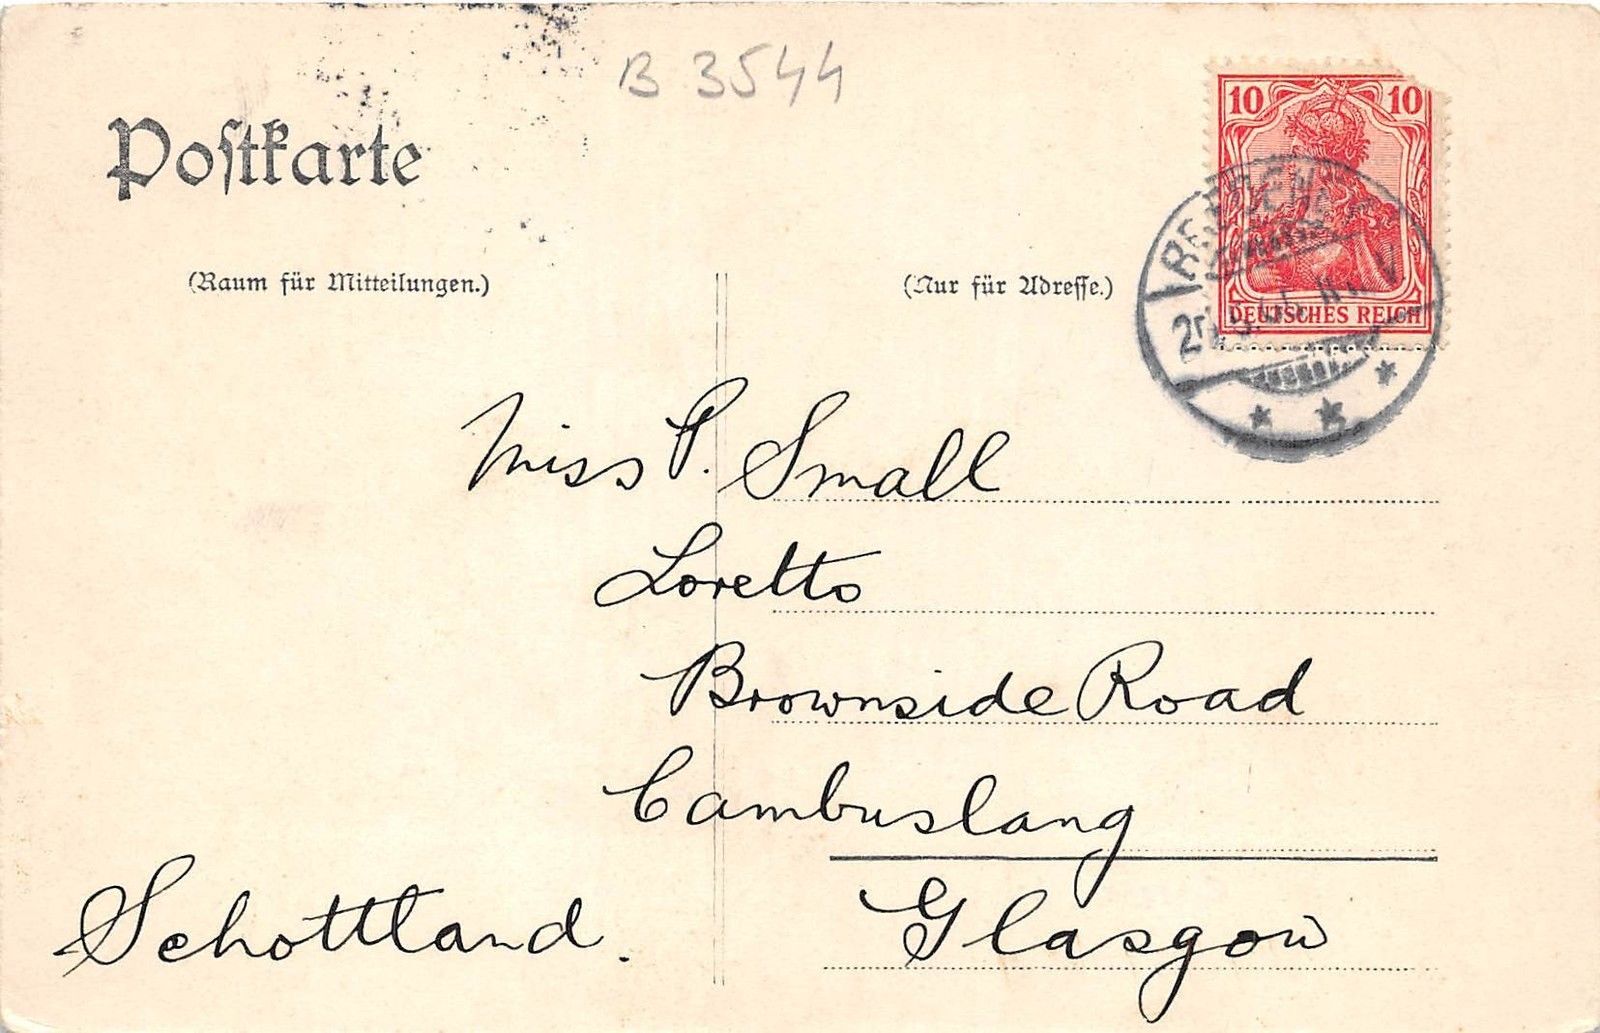 B 3544
Postkarte
10 10
(Raum für Mitteilungen.)
(Nur für Adresse.)
DEUTSCHES REICH
Miss P. Small
Loretto
Brownside Road
Cambuslang
Glasgow
Schottland.